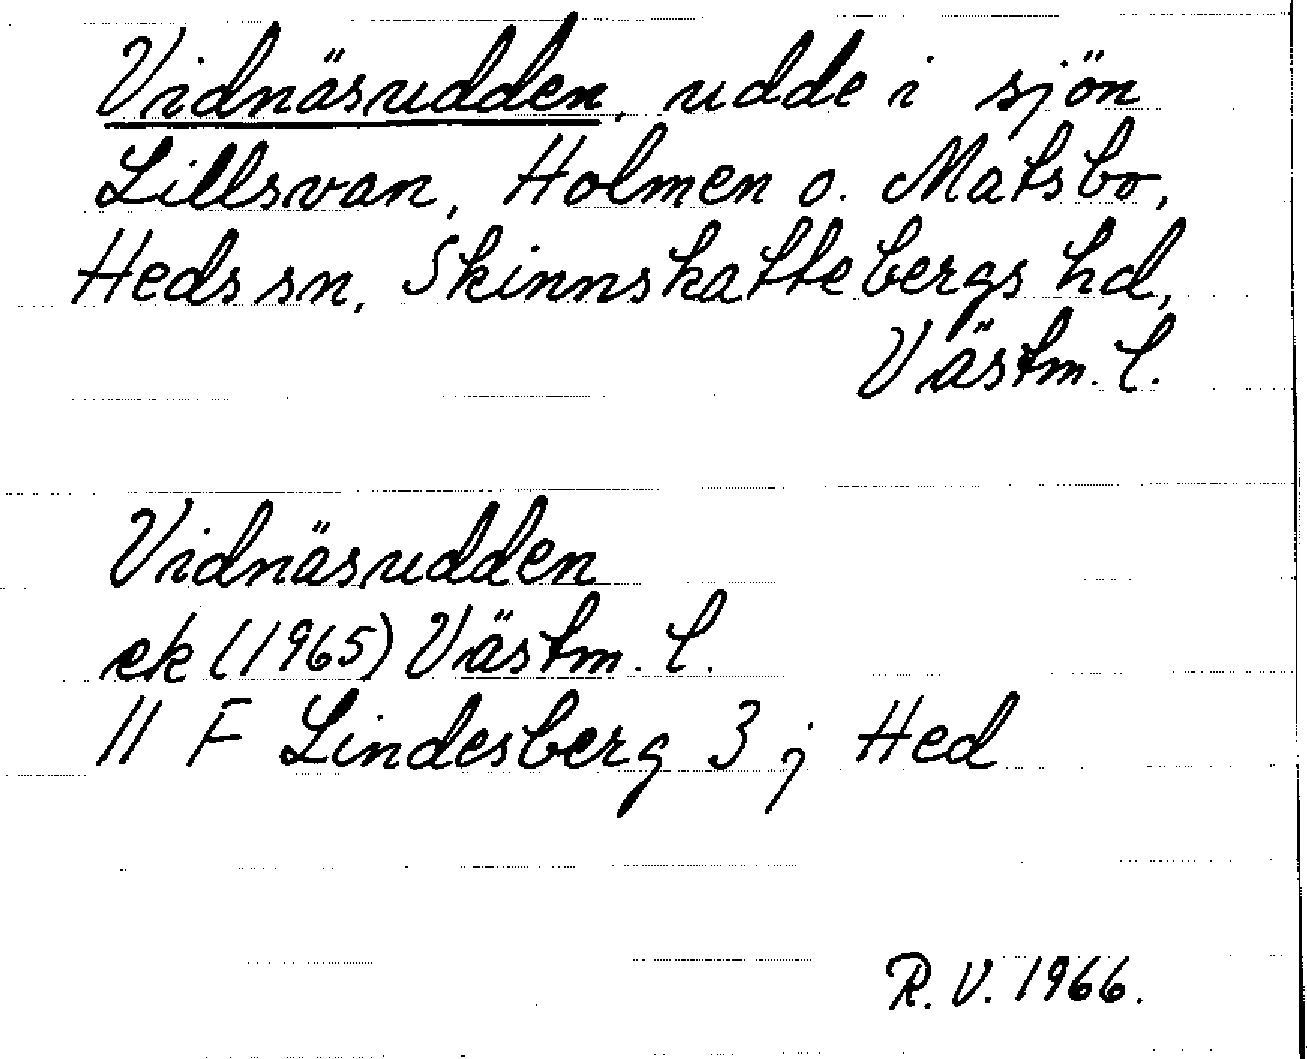 Vidnäsudden, udde i sjön
Lillsvan, Holmen o. Matsbo,
Heds sn, Skinnskattebergs hd,
Västm. l.
Vidnäsudden
ek (1965) Västm. l.
11 F Lindesberg 3 j Hed
R. V. 1966.